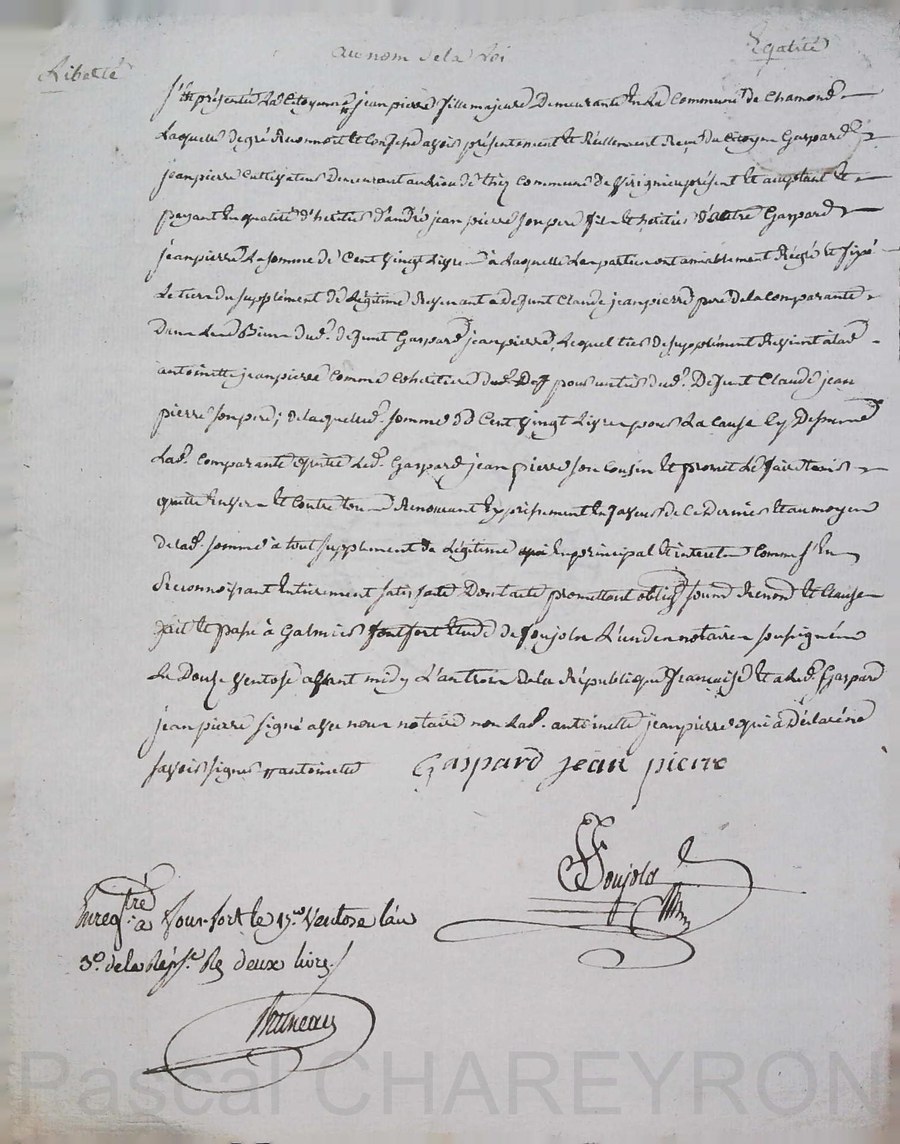 Liberté
au nom de la Loi
Egalité
S'est présentée La Citoyenne jeanpierre fille majeure Demeurante En La Commune de Chamond
Laquelle de gré Reconnoit et Confesse avoir présentement et Réellement Reçu du Citoyen Gaspard
jeanpierre Cultivateur Demeurant au lieu de Commune de présent et acceptant et
payant En qualité d'heritier d'andré jean pierre son pere fils et heritier d'autre Gaspard
jeanpierre La somme de Cent Vingt Livres à Laquelle Les parties ont amiablement Réglé et fixé
Le tiers du supplément de Légitime Revenant a defunt Claude jeanpierre pere de la Comparante
Dans Les Biens dud. defunt Gaspard jeanpierre, Lequel tiers de supplément Revient à lad.
antoinette jeanpierre Comme Cohéritiere dud. pour un tiers dud. Defunt Claude jean
pierre son pere; de laquelle somme de Cent Vingt Livres pour La Cause Cy Dessus
Lad. Comparante quitte Led. Gaspard jean pierre son Cousin et promet Le faire tenir
quitte Envers et Contre tous Renonçant Expressement En faveur de Ce dernier et au moyen
de lad. somme à tout supplement de Légitime En principal et interets Comme s'En
Reconnoissant Entierement satisfaite Dont acte promettant obligt. soumd. Renond. et Clauses
fait et passé à Galmier Etude de Soujols L'un des notaires soussignés
Le Douze Ventose avant midy L'an trois de la République française et a Led. Gaspard
jeanpierre signé avec nous notaire non Lad. antoinette jeanpierre qui a Déclaré ne
savoir signer antoinette
Gaspard jean pierre
Soujols
Enregtré à Vour-fort le 15 Ventose l'an
3e. de la Répe. Rs deux livres
Bruneau
Pascal CHAREYRON